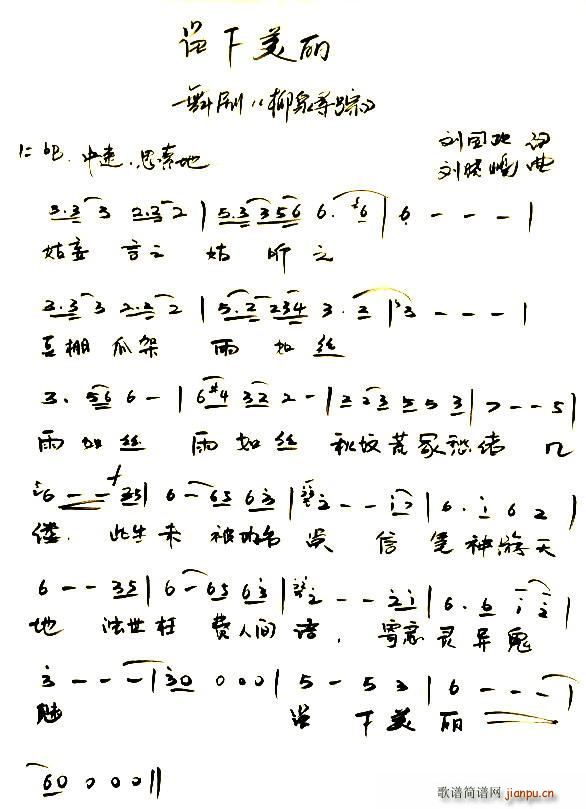 留下美丽
舞剧《柳泉寻踪》
1=bE 中速、思索地
刘国 词
刘晓 曲
3.3 3 2.3 2 | 5.3 3 5 6 6. #6 | 6 - - - |
姑妄言之 姑听之
3.3 3 2.2 2 | 5.2 2 3 4 3. 2 | 3 - - - |
豆棚瓜架 雨如丝
3. 56 6 - | 6#4 32 2 - | 2 23 5 5 3 | 7 - - 5 |
雨如丝 雨如丝 秋坟荒冢愁绪 几
6 - - 35 | 6 - 65 63 | 2 - - i7 | 6. i 6 2 |
缕. 此生未 被功名 误 信笔神游天
6 - - 35 | 6 - 65 63 | 2 - - 2i | 6. 6 i 2 |
地 浊世枉 费人间 语, 寄意灵异鬼
3 - - - | 30 0 0 0 | 5 - 5 3 | 6 - - - |
魅 留 下美 丽
60 0 0 0 ||
歌谱简谱网
jianpu.cn